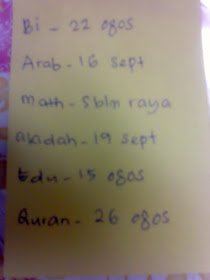 Bi - 22 ogos
Arab - 16 sept
math - sblm raya
akidah - 19 sept
Edu - 15 ogos
Quran - 26 ogos